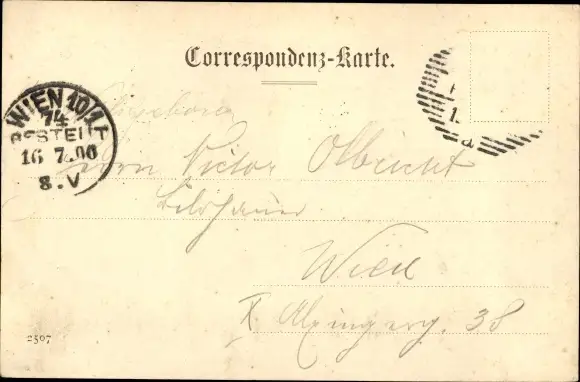 Correspondenz-Karte.
WIEN 10/1
74
BESTELLT
16 7.00
8.V
Herrn Victor Olbricht
Bildhauer
Wien
X Alxingerg. 38
2507